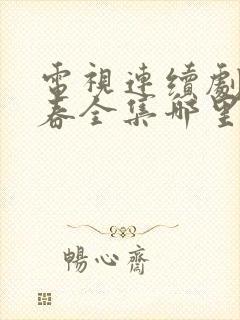 電視連續劇
春全集哪里
暢心齋